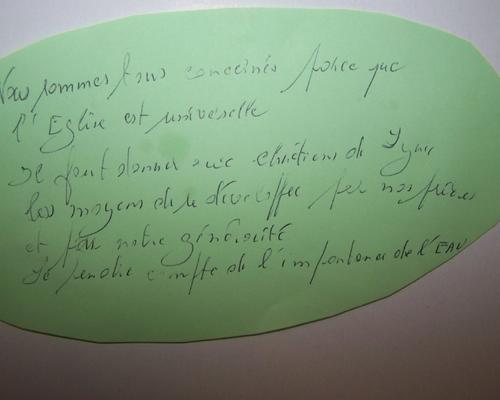 Nous sommes tous concernés parce que
l'Eglise est universelle
Il faut donner aux chrétiens de
les moyens de se développer par nos prières
et par notre générosité
Se rendre compte de l'importance de l'EAU